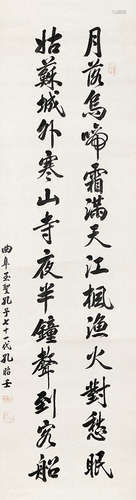 月落烏啼霜滿天江楓漁火對愁眠
姑蘇城外寒山寺夜半鐘聲到客船
曲阜至聖孔子七十一代孔昭壬